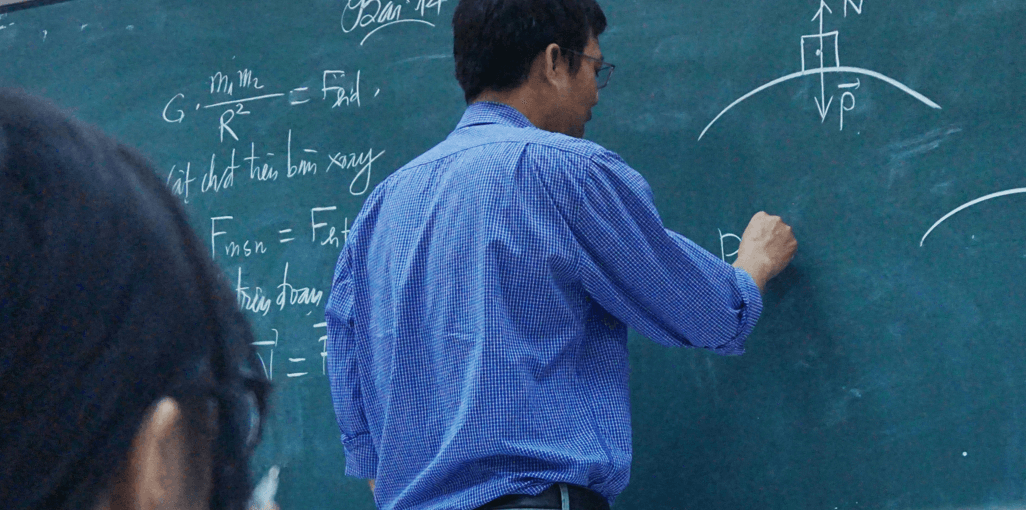 Bài 14
G. m₁m₂/R² = Fhd.
Vật chđ trên bàn xoay
Fmsn = Fht
trên đoạn
N
P
=
P